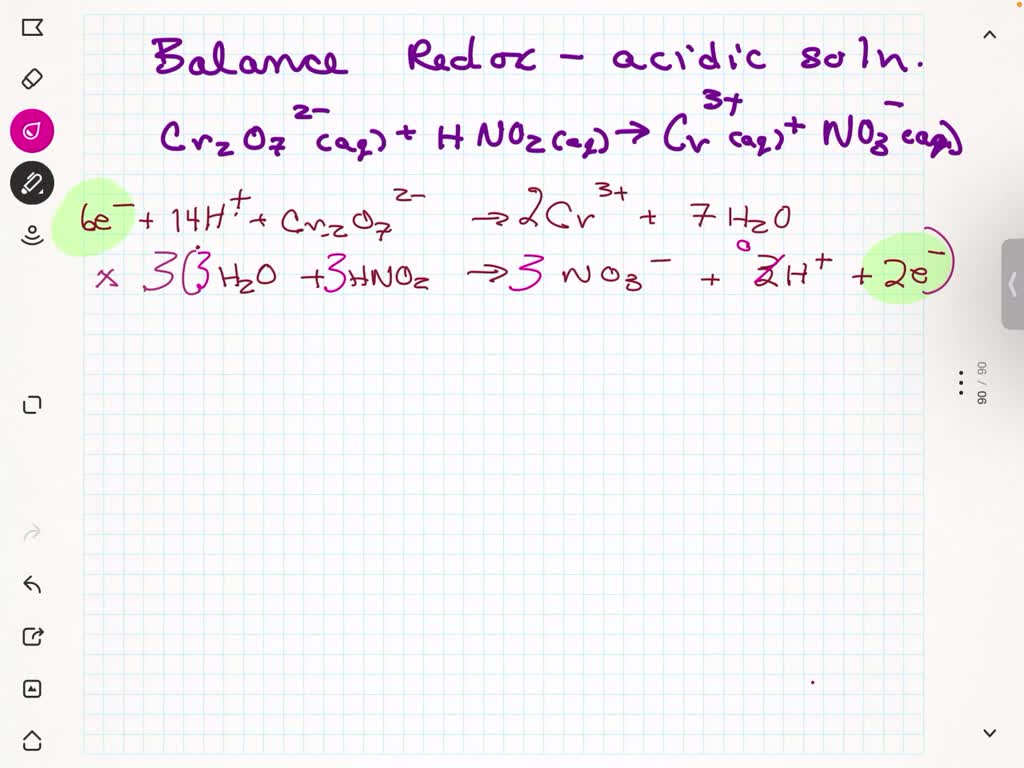 Balance Redox - acidic soln.
Cr₂O₇²⁻(aq) + HNO₂(aq) → Cr³⁺(aq) + NO₃⁻(aq)
6e⁻ + 14H⁺ + Cr₂O₇²⁻ → 2Cr³⁺ + 7H₂O
x 3(3H₂O + 3HNO₂ → 3NO₃⁻ + H⁺ + 2e⁻)
90 / 90